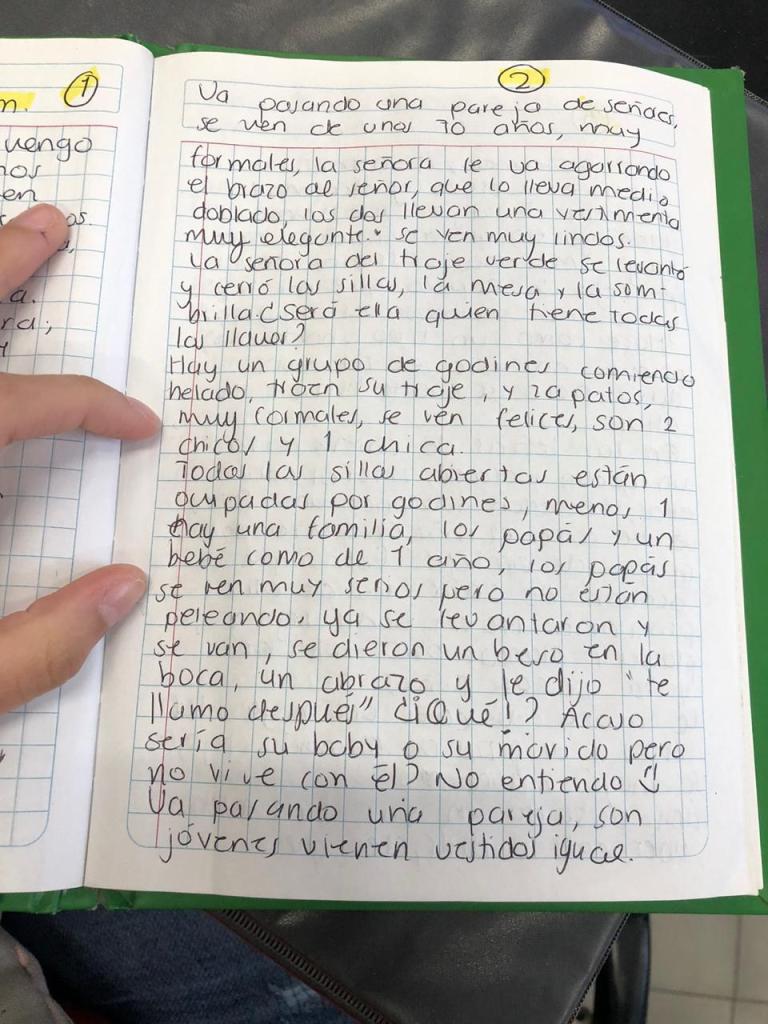 n. 1
uengo
nos
en
os.
a.
rd;
y
2
Va pasando una pareja de señores,
se ven de unos 70 años, muy
formales, la señora le va agarrando
el brazo al señor, que lo lleva medio
doblado, los dos llevan una vestimenta
muy elegante. se ven muy lindos.
La señora del traje verde se levantó
y cerró las sillas, la mesa y la som-
brilla ¿será ella quien tiene todas
las llaves?
Hay un grupo de godines comiendo
helado, traen su traje, y zapatos,
muy formales, se ven felices, son 2
chicos y 1 chica.
Todas las sillas abiertas están
ocupadas por godines, menos 1
hay una familia, los papás y un
bebé como de 1 año, los papás
se ven muy serios pero no están
peleando, ya se levantaron y
se van, se dieron un beso en la
boca, un abrazo y le dijo "te
llamo después" ¿¡Qué!? Acaso
sería su baby o su marido pero
no vive con él? No entiendo
Va pasando una pareja, son
jóvenes vienen vestidos igual.